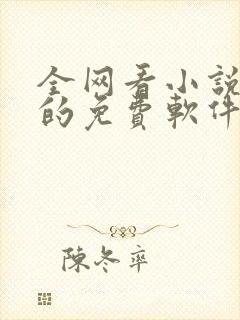 全网看小説
的免費軟件
陳冬率